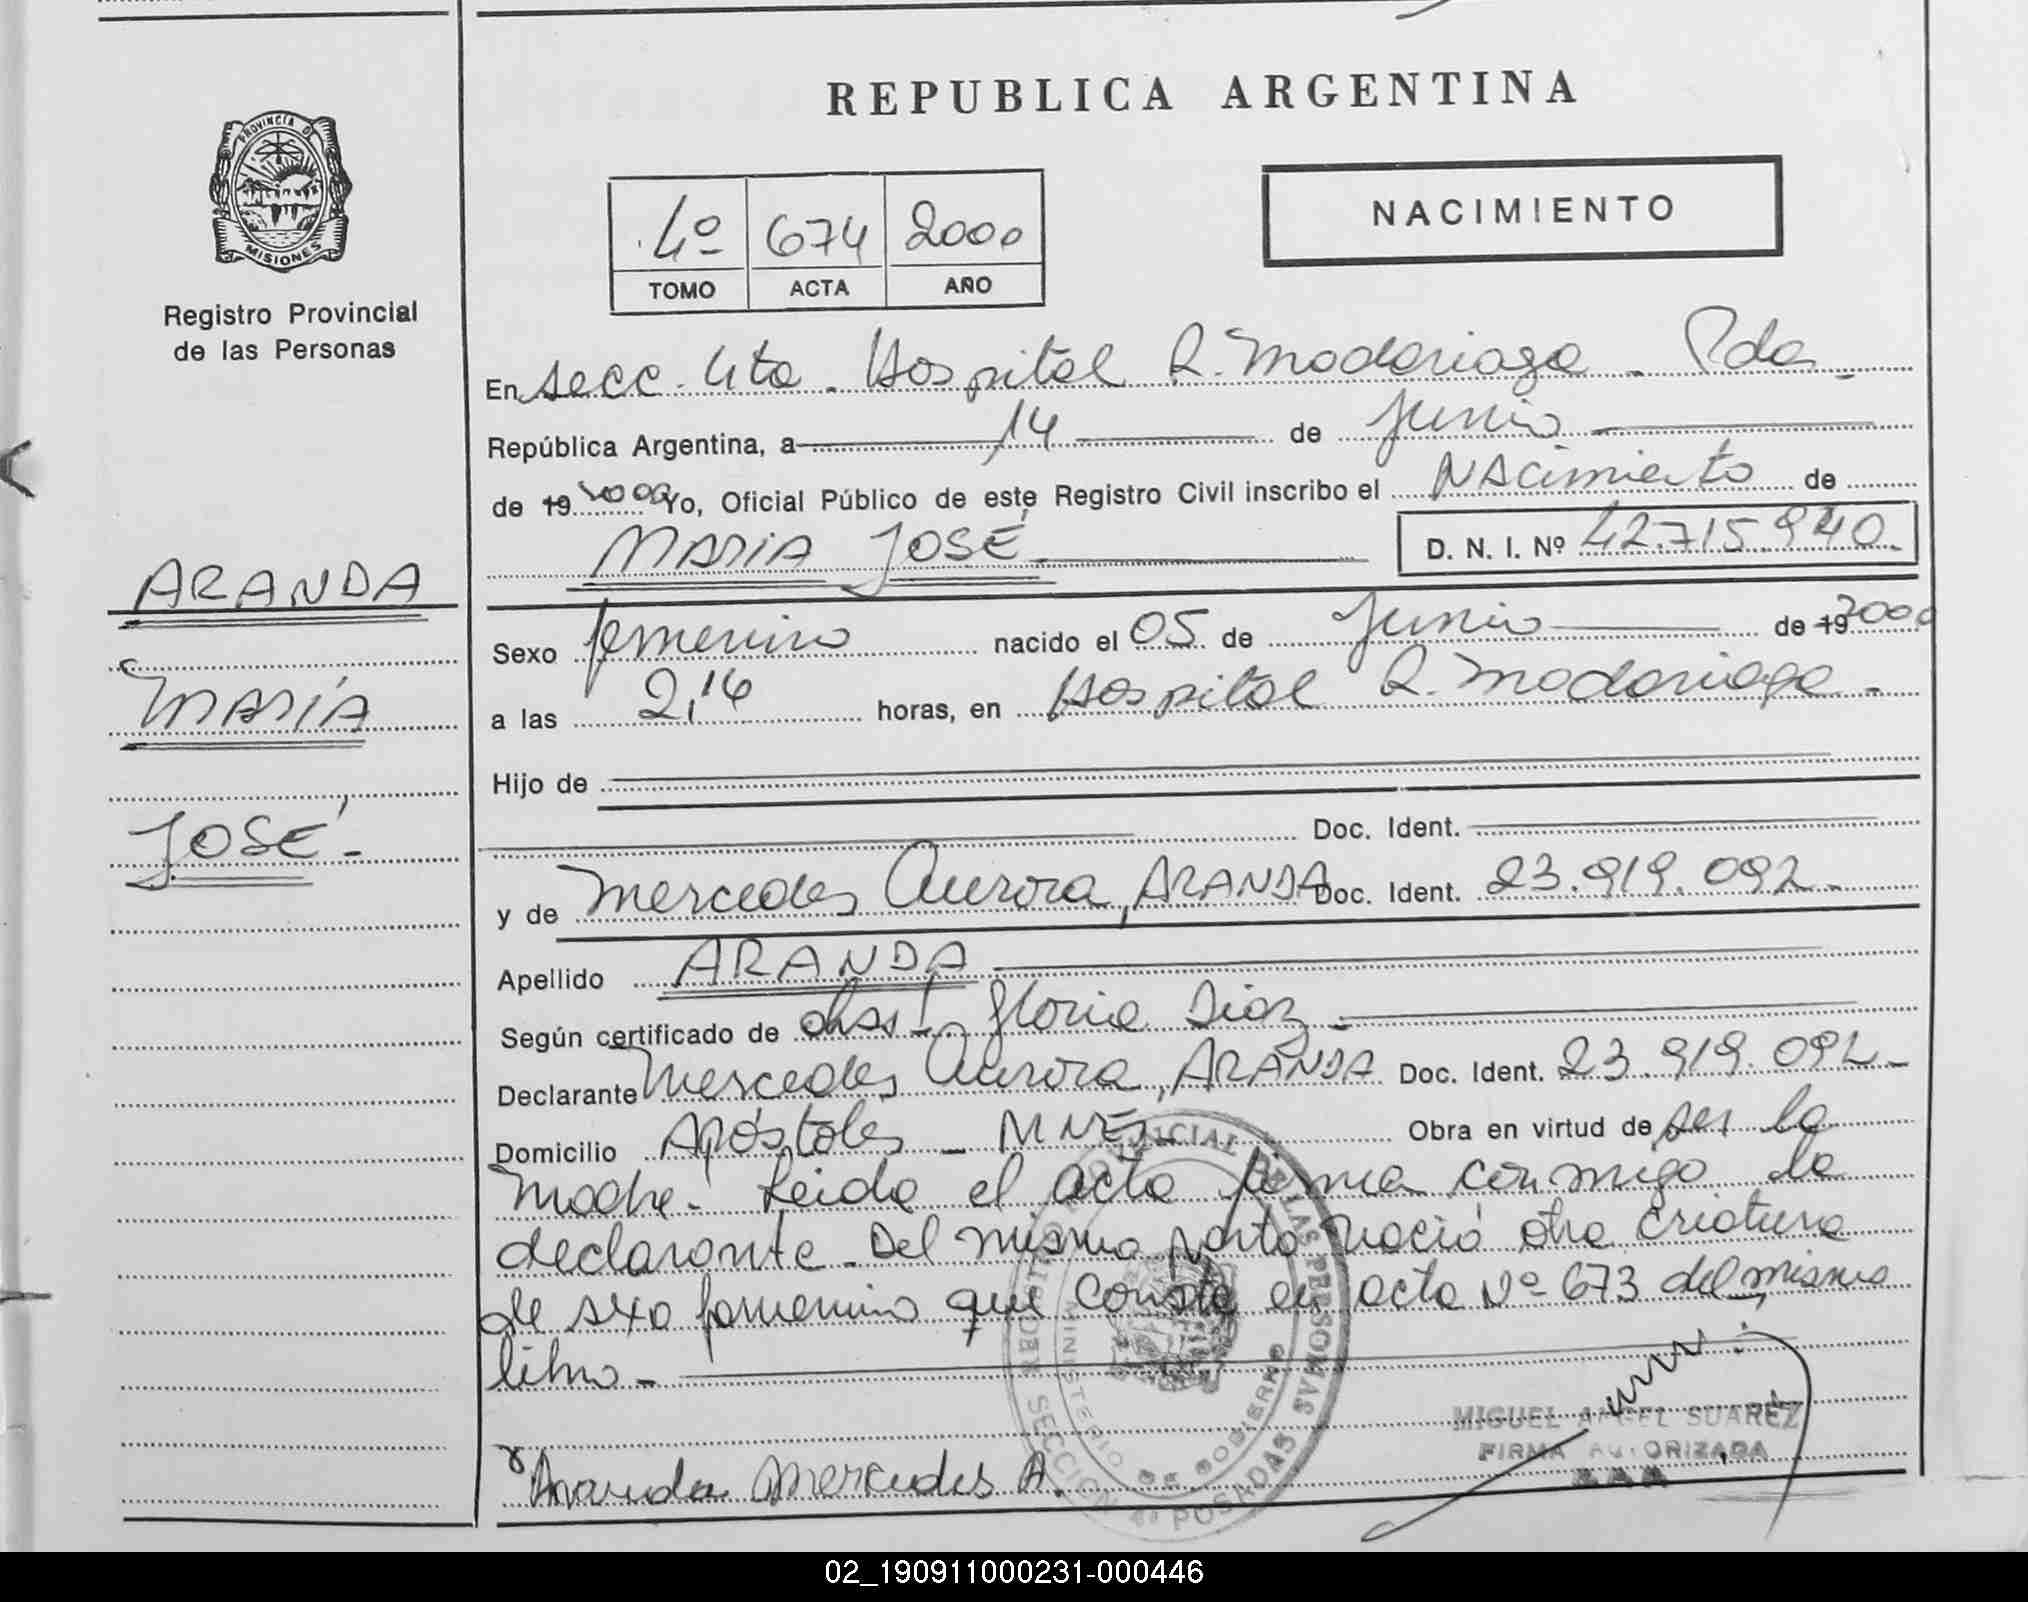 REPUBLICA ARGENTINA
PROVINCIA DE
MISIONES
Registro Provincial
de las Personas
4º 674 2000
TOMO ACTA AÑO
NACIMIENTO
En secc. 4ta. Hospital R. Madariaga. Pdas.
República Argentina, a 14 de junio
de 19 2000 Yo, Oficial Público de este Registro Civil inscribo el Nacimiento de
MARIA JOSÉ D. N. I. Nº 42.715.940.
ARANDA
MARÍA
JOSÉ.-
Sexo femenino nacido el 05 de junio de 19 2000
a las 2,14 horas, en Hospital R. Madariaga.
Hijo de
Doc. Ident.
y de Mercedes Aurora, ARANDA Doc. Ident. 23.919.092.-
Apellido ARANDA
Según certificado de obst. Gloria Diaz.-
Declarante Mercedes Aurora, ARANDA Doc. Ident. 23.919.092.-
Domicilio Apóstoles - MNES. Obra en virtud de ser la
madre. Leida el acta firma conmigo la
declarante. Del mismo parto nació otra criatura
de sexo femenino que consta en acta Nº 673 del mismo
libro.-
Aranda Mercedes A.
REGISTRO PROVINCIAL DE LAS PERSONAS
MINISTERIO DE GOBIERNO
SECCION 4ª POSADAS
MIGUEL ANGEL SUAREZ
FIRMA AUTORIZADA
02_190911000231-000446